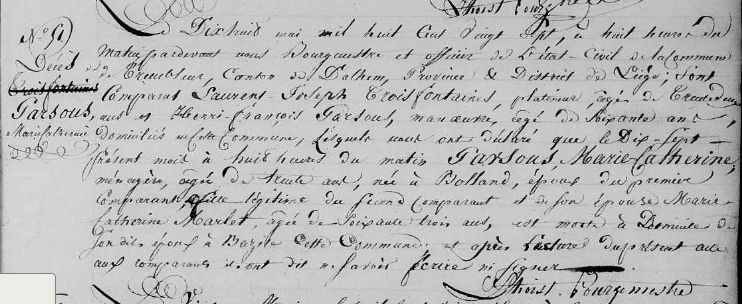 Thorst Bourgmestre
N° 51
Décès de
Troisfontaines
Tarsous,
Marie Catherine
Le Dixhuit mai mil huit Cent Vingt Sept, à huit heures du
Matin, pardevant nous Bourgmestre et officier de l'état-Civil de la Commune
de Trembleur, Canton de Dalhem, Province & District de Liége; sont
Comparus Laurent-Joseph Troisfontaines, platineur âgé de Trente deux
ans et Henri-François Tarsous, manœuvre, âgé de Soixante ans,
domiciliés en Cette Commune, Lesquels nous ont déclaré que le Dix-Sept
présent mois à huit heures du matin Tarsous, Marie-Catherine,
ménagère, âgée de trente ans, née à Bolland, épouse du premier
Comparant, fille légitime du second Comparant et de son épouse Marie-
Catherine Marlet, âgée de Soixante trois ans, est morte à Domicile de
son dit époux à Cette Commune, et après Lecture du présent acte
aux comparants ils ont dit ne Savoir Ecrire ni Signer
Thorst, Bourgmestre